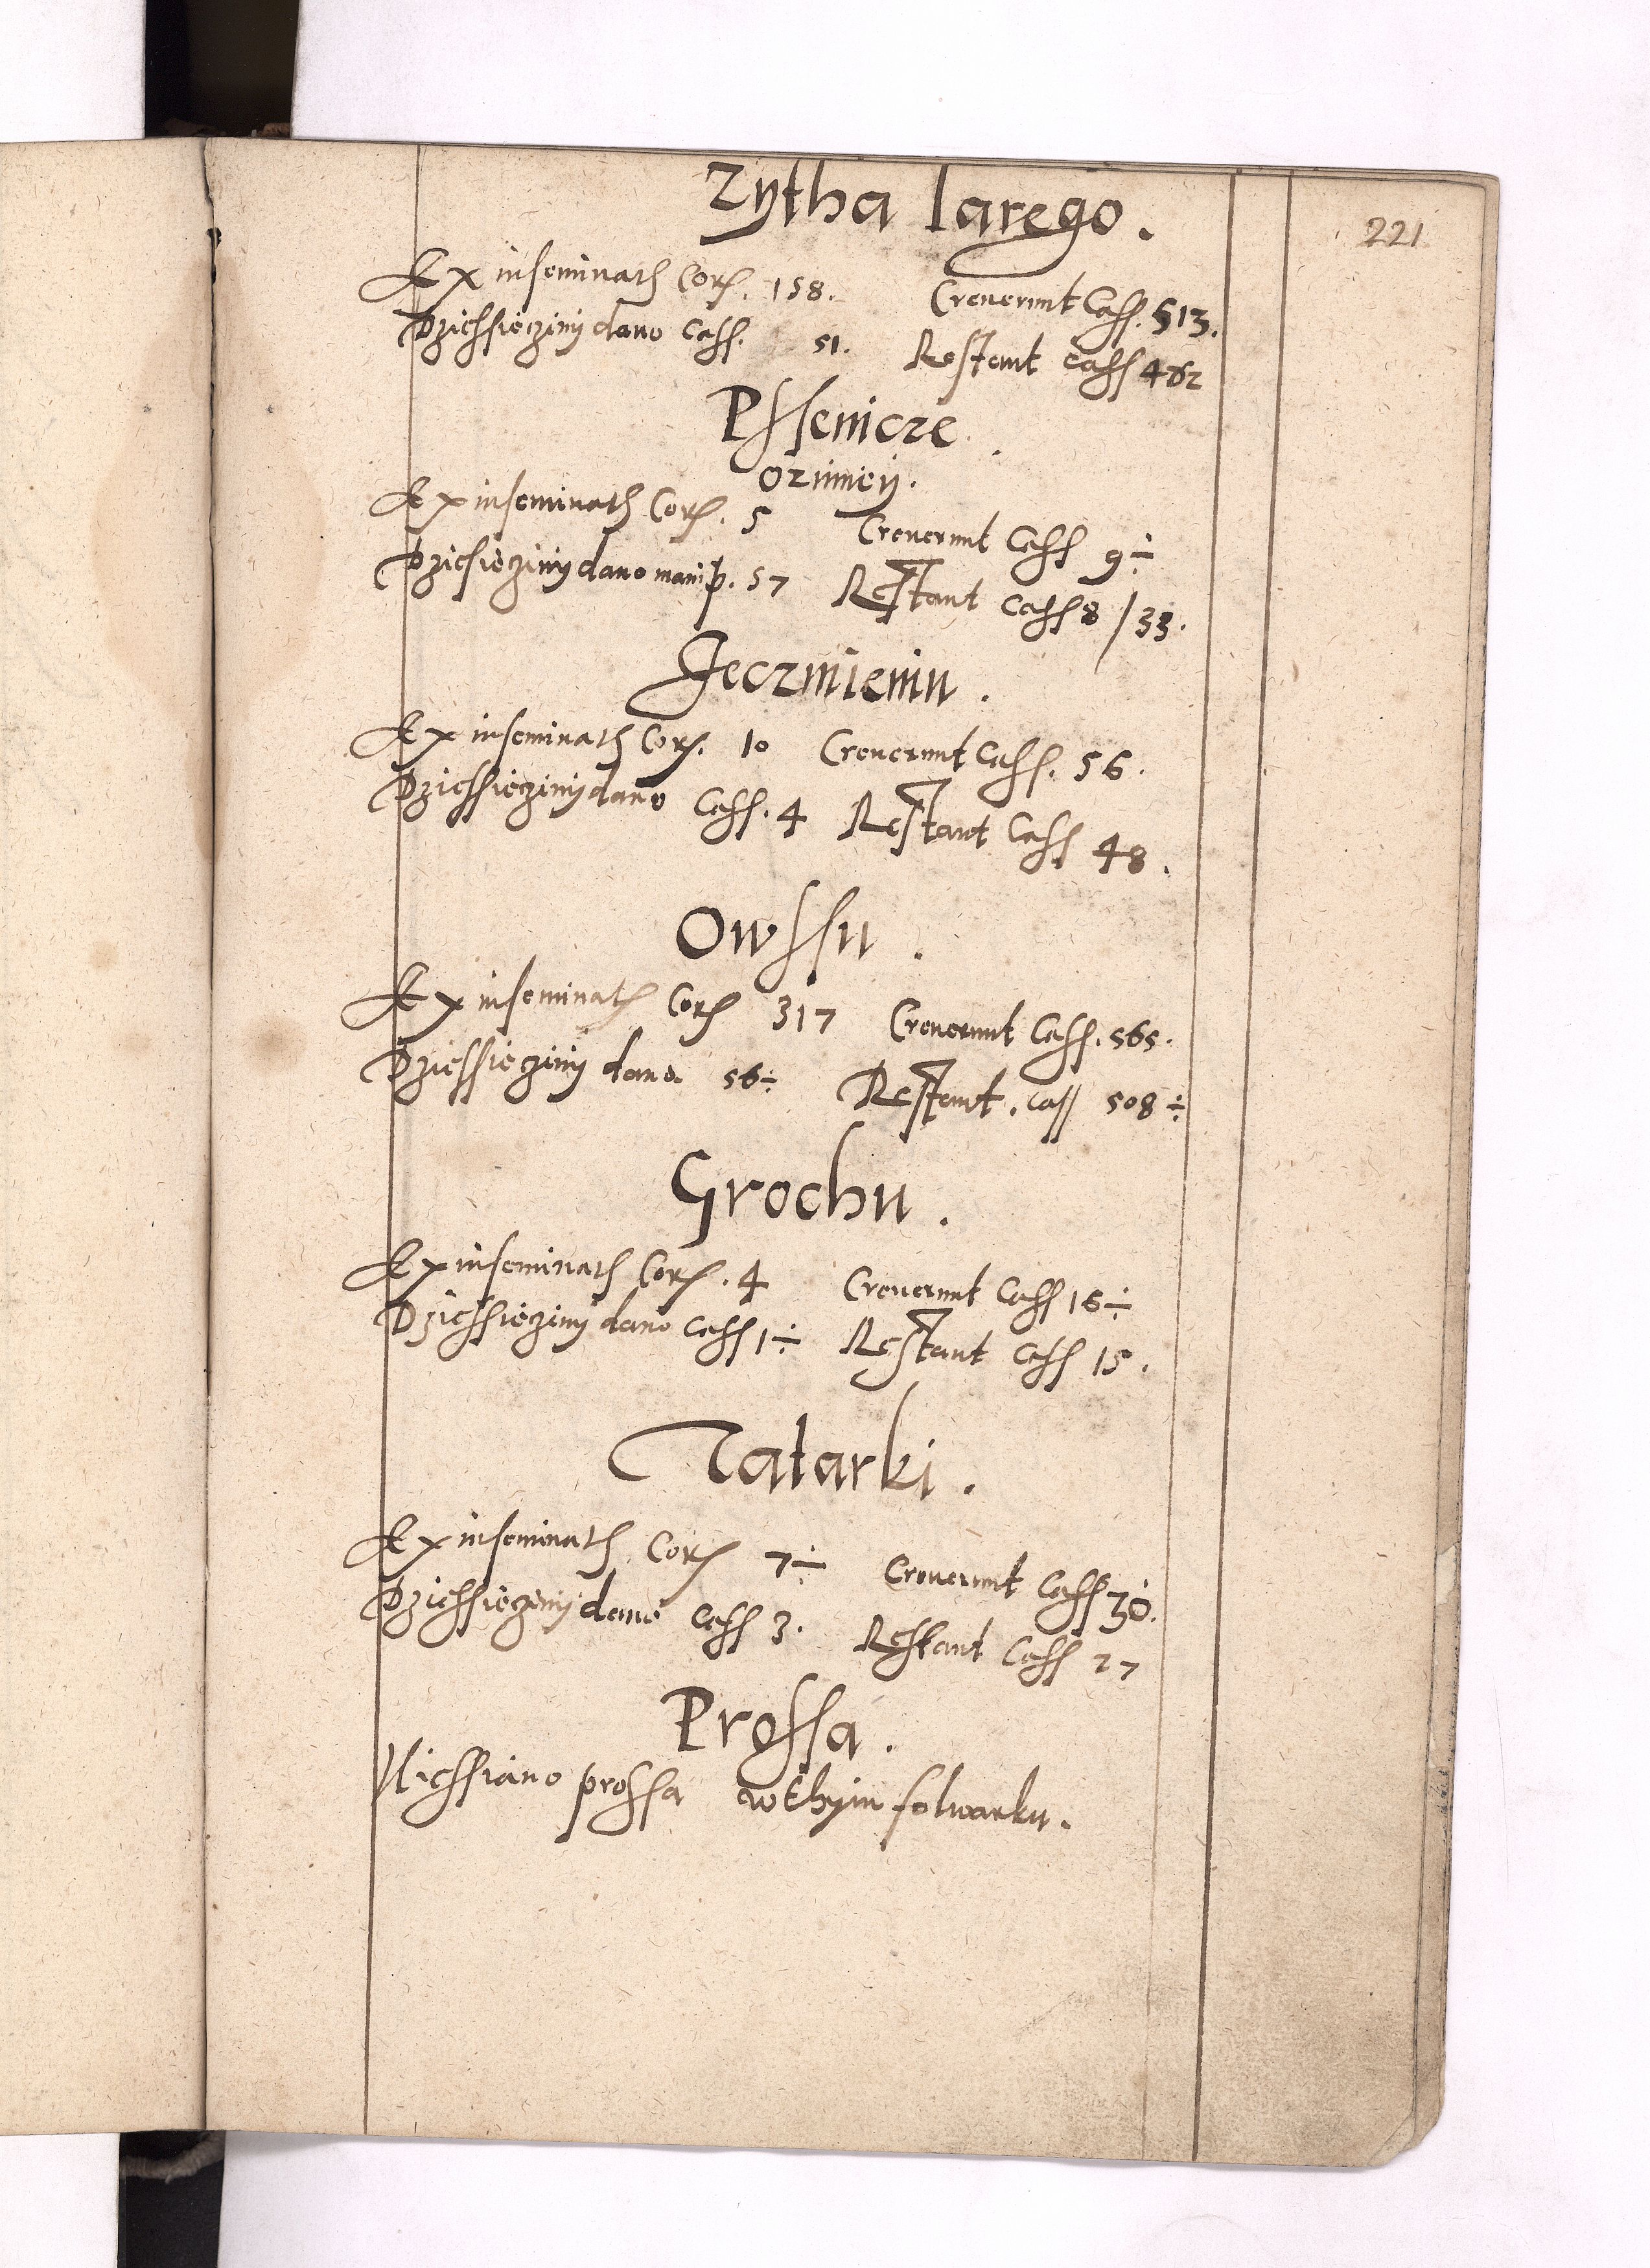 221
Zytha Iarego.
Ex inseminath Cor. 158. Creuerunt Cass. 513.
Dziessięcziny dano Cass. 51. Restant Cass 462
Pssenicze.
Ozimiey.
Ex inseminath Cor. 5 Creuerunt Cass 9÷
Dziesięcziny dano manip. 57 Restant Cass 8 / 33.
Jeczmieniu.
Ex inseminath Cor. 10 Creuerunt Cass. 56.
Dziessięcziny dano Cass. 4 Restant Cass 48.
Owssu.
Ex inseminath Cor 317 Creuerunt Cass. 565.
Dziessięcziny dano 56÷ Restant. Cass 508÷
Grochu.
Ex inseminath Cor. 4 Creuerunt Cass 16÷
Dziessięcziny dano Cass 1÷ Restant Cass 15.
Tatarki.
Ex inseminath Cor 7÷ Creuerunt Cass 30.
Dziessięcziny dano Cass 3. Restant Cass 27
Prossa.
Niessiano prossa wthym folwarku.